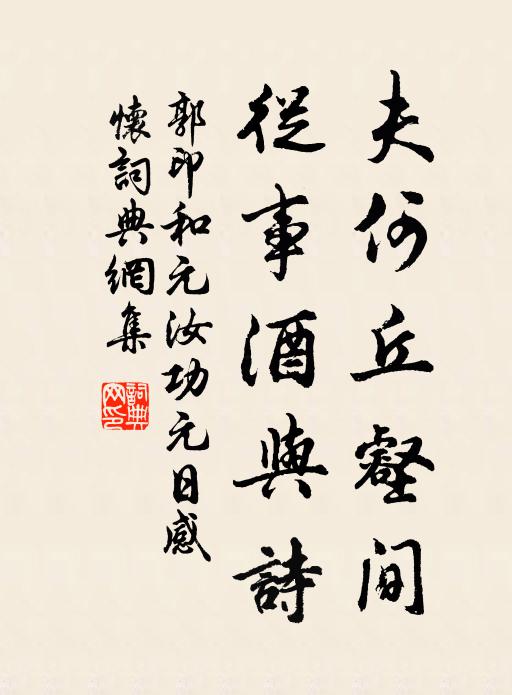 夫何丘壑间
從事酒與詩
郭印和元汝功元日感
懷詞典網集
詞典網印